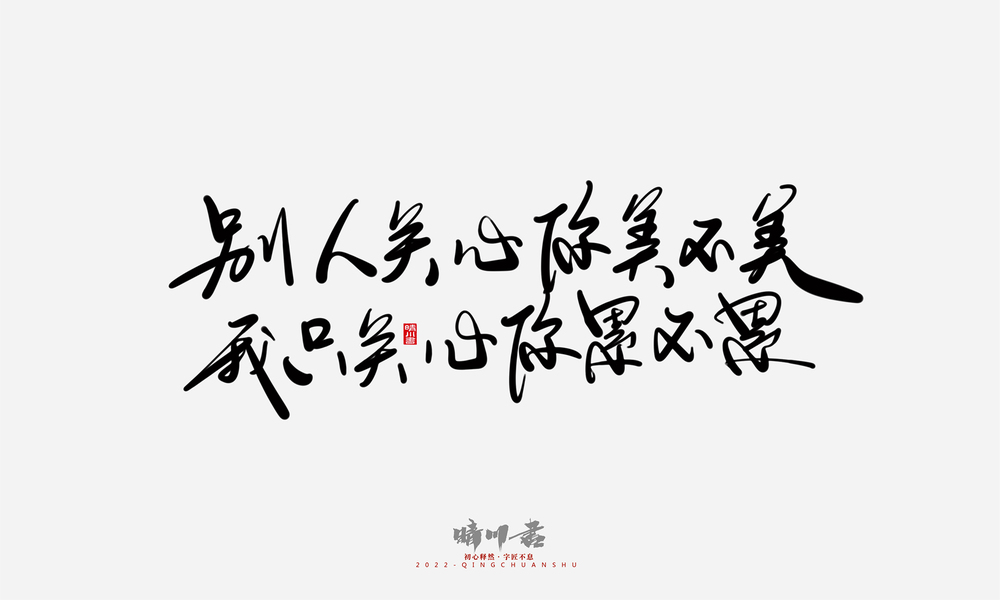 别人关心你美不美
我只关心你累不累
晴川書
晴川書
初心释然·字匠不息
2022-QINGCHUANSHU